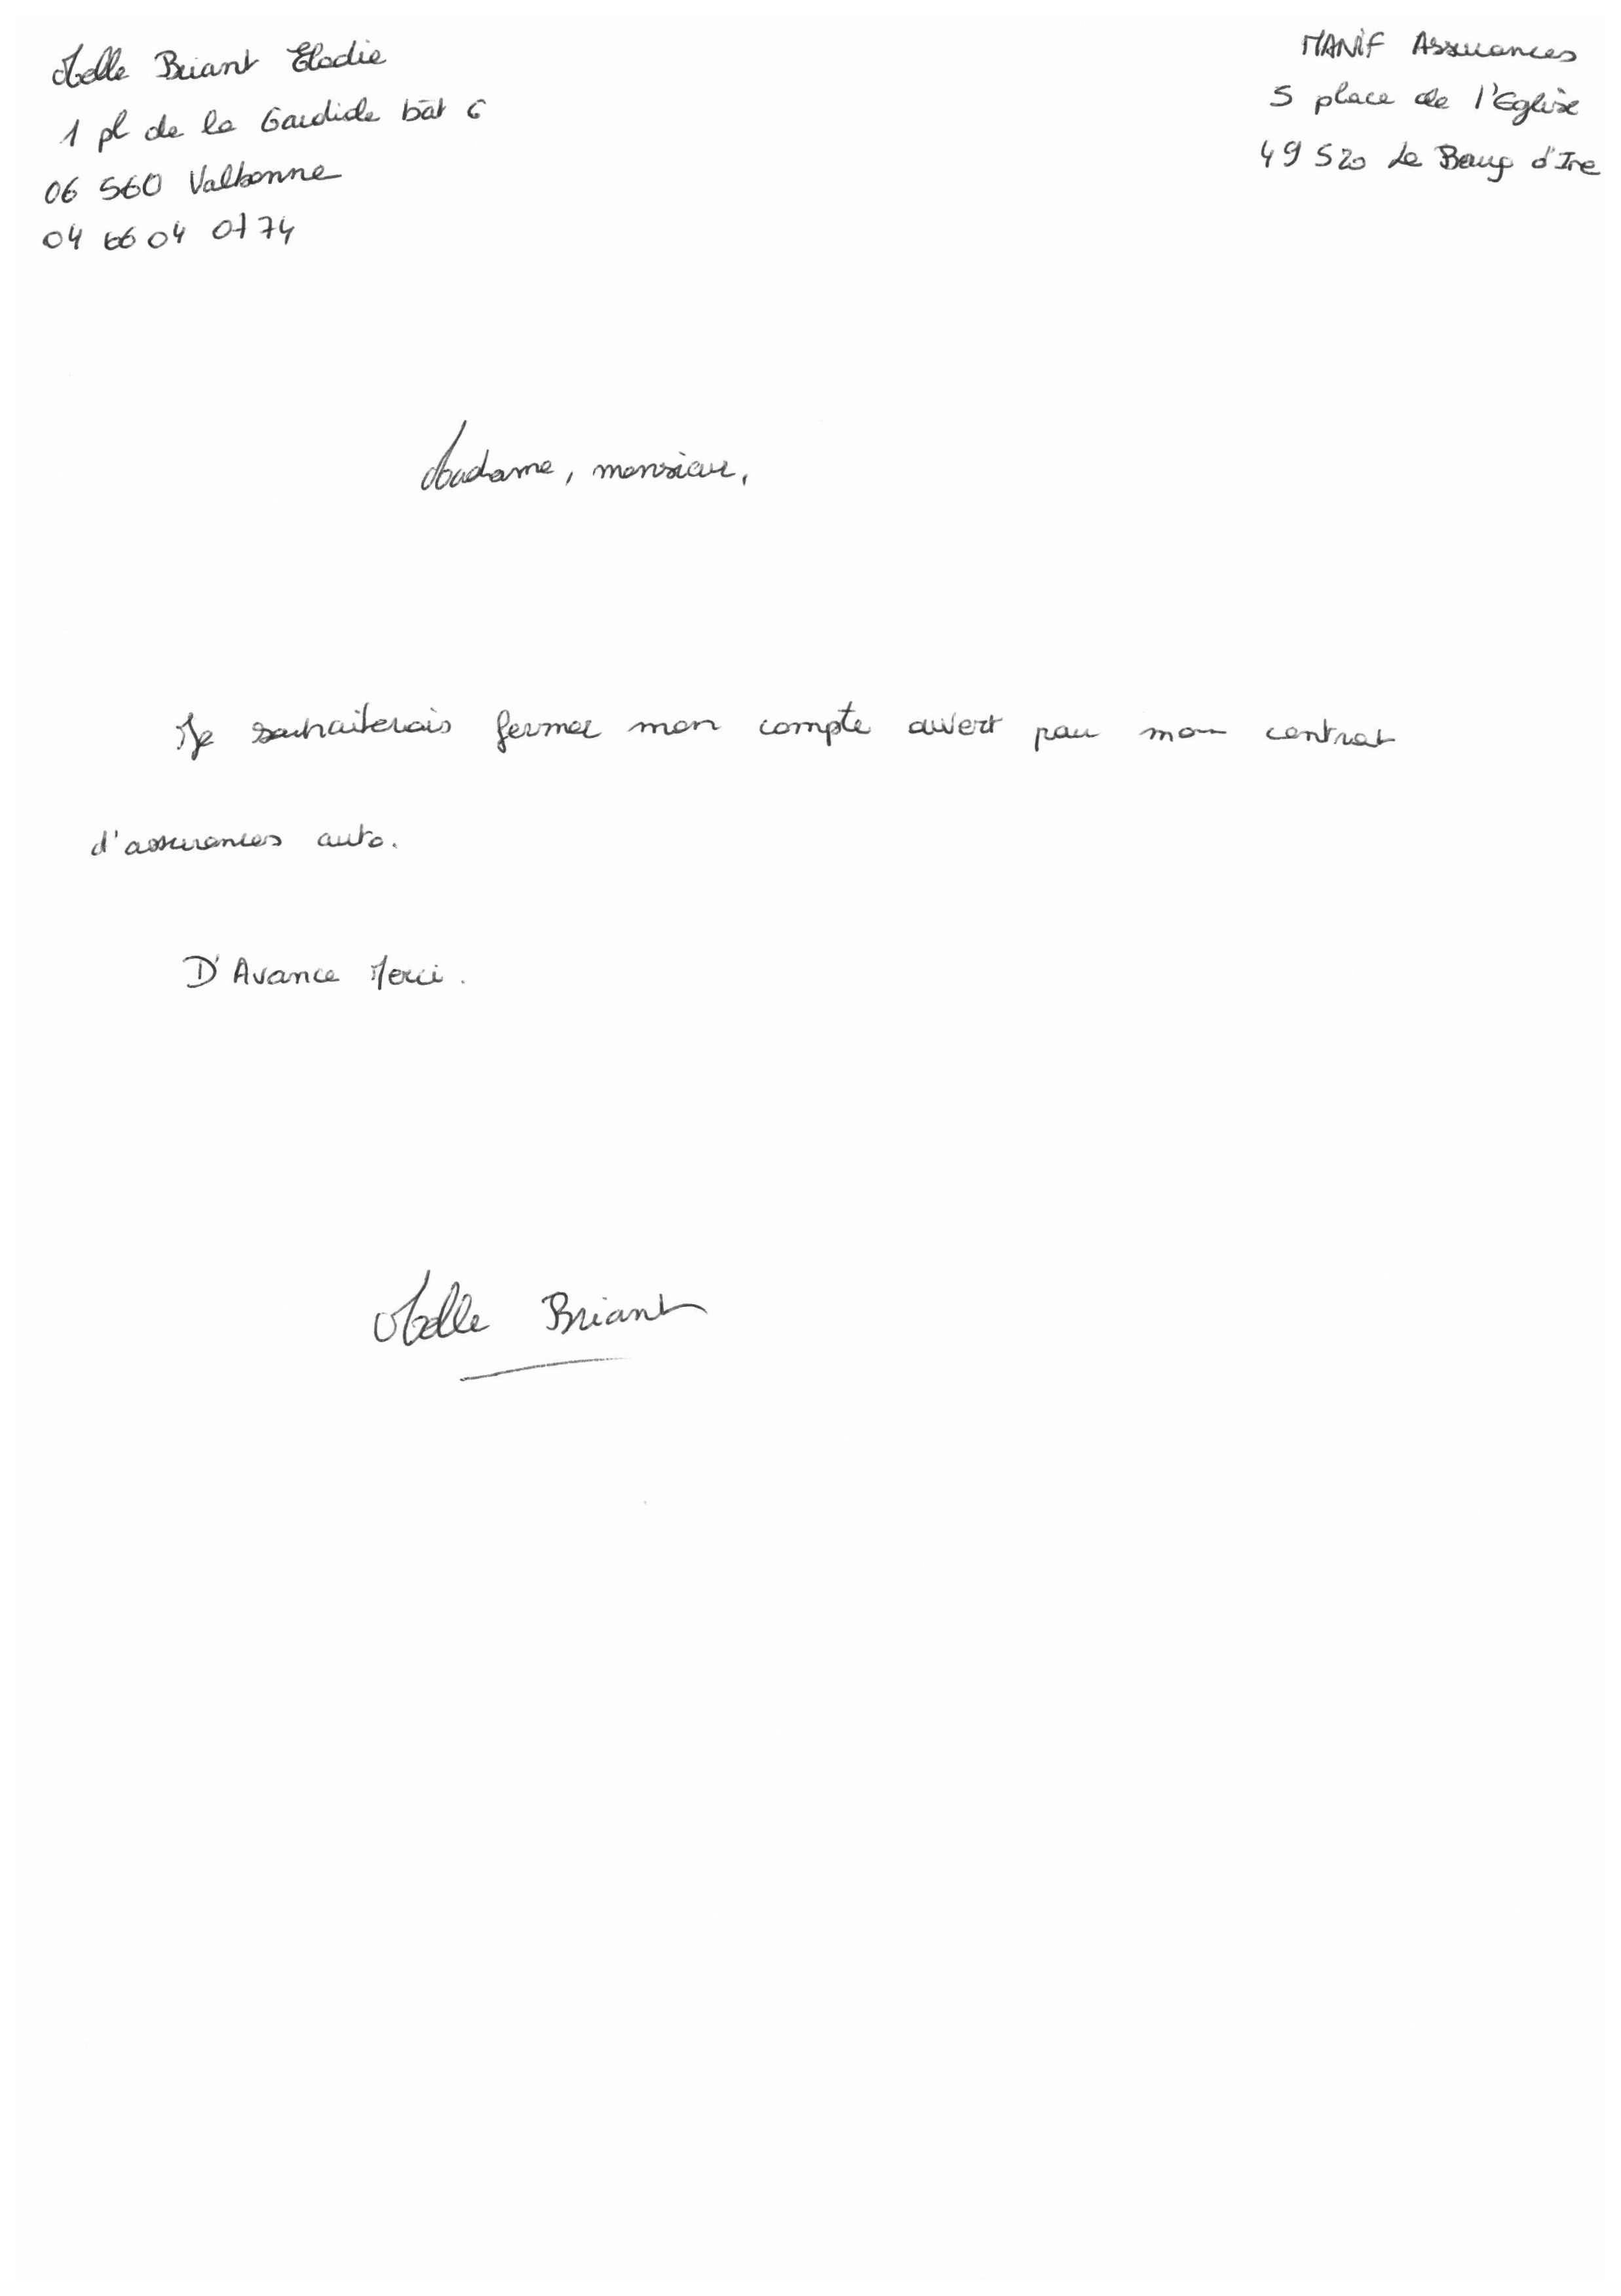 Melle Briant Elodie
1 pl de la Gardide bât C
06 560 Valbonne
04 66 04 01 74
MANIF Assurances
5 place de l'Eglise
49 520 Le Bourg d'Ire
Madame, monsieur,
Je souhaiterais fermer mon compte ouvert pour mon contrat
d'assurances auto.
D'Avance Merci.
Melle Briant